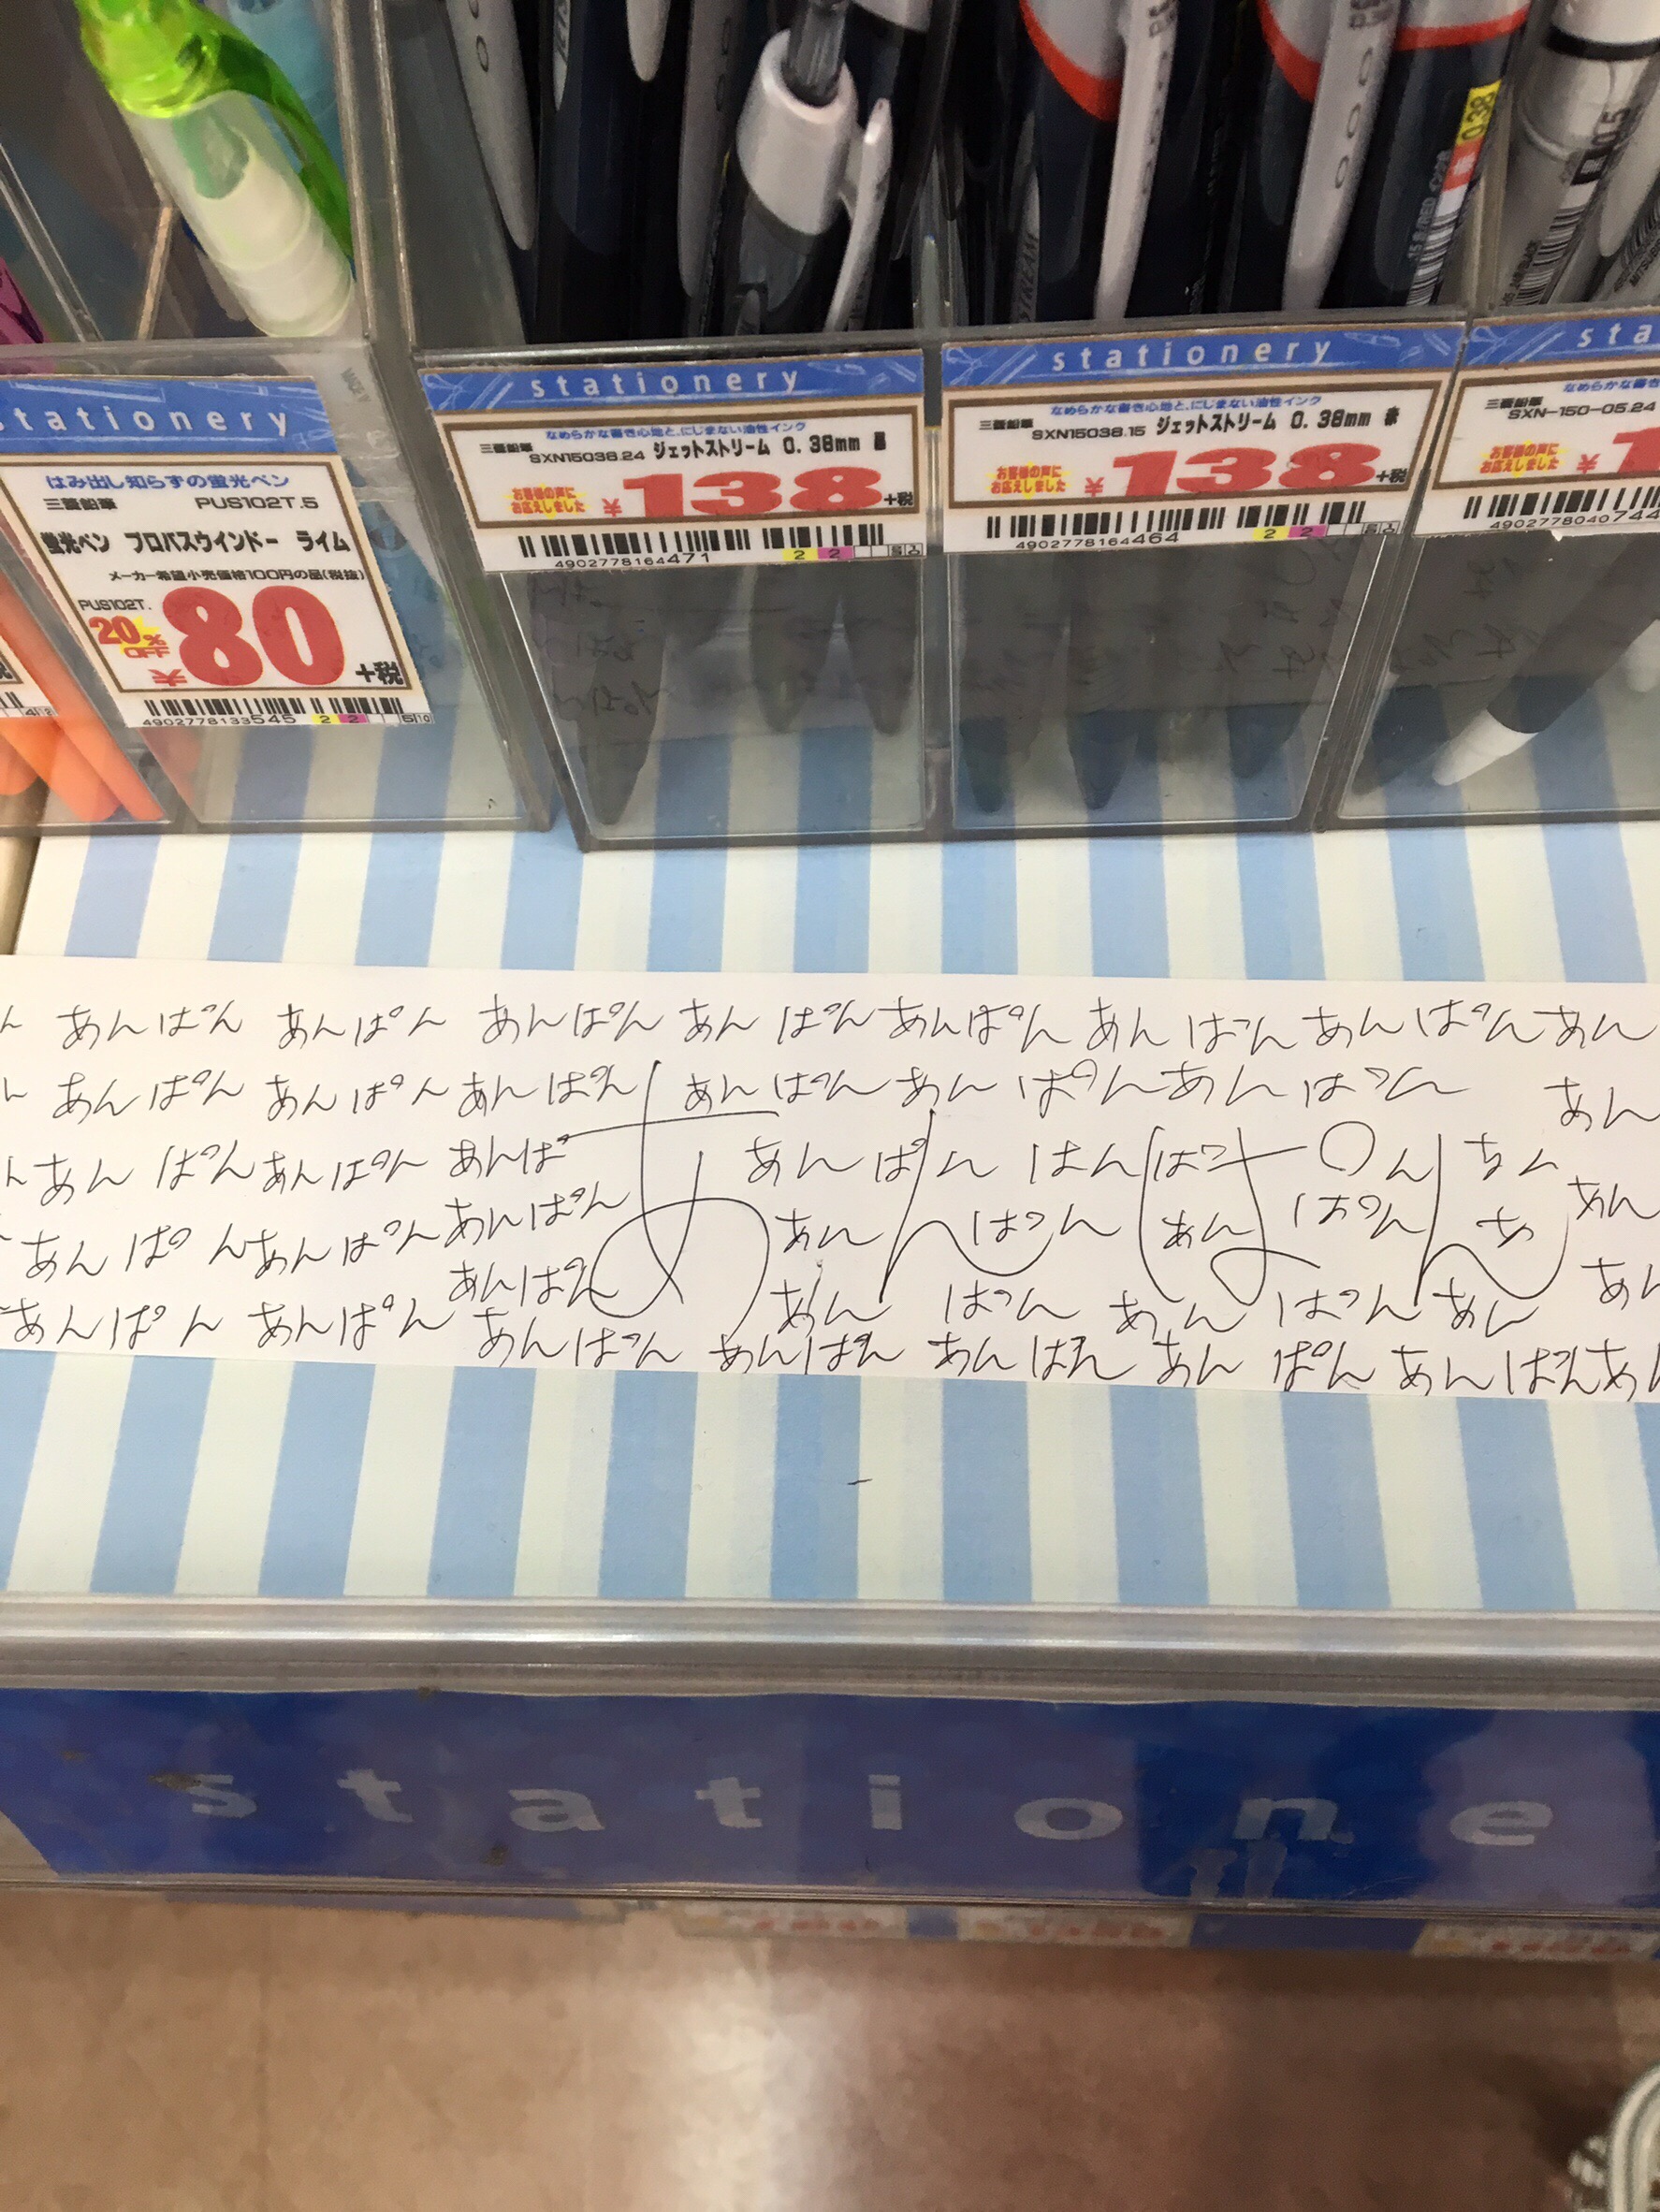 stationery
はみ出し知らずの蛍光ペン
三菱鉛筆 PUS102T.5
蛍光ペン プロパスウインドー ライム
メーカー希望小売価格100円の品(税抜)
PUS102T.
20%OFF ¥80+税
4902778133545 2 2
stationery
なめらかな書き心地と、にじまない油性インク
三菱鉛筆 SXN15038.24 ジェットストリーム 0.38mm 黒
お客様の声にお応えしました ¥138+税
4902778164471 2 2
stationery
なめらかな書き心地と、にじまない油性インク
三菱鉛筆 SXN15038.15 ジェットストリーム 0.38mm 赤
お客様の声にお応えしました ¥138+税
4902778164464 2 2
sta
なめらかな書き
三菱鉛筆 SXN-150-05.24
お客様の声にお応えしました ¥1
4902778040744
0.38
0.5
ん あんぱん あんぱん あんぱん あんぱん あんぱん あんぱん あんぱん あん
ん あんぱん あんぱん あんぱん あんぱん あんぱん あんぱん あん
ん あん ぱん あんぱん あんぱ あんぱん はんぱん ちん
あん ぱん あんぱん あんぱん あん ぱん あん ぱん あ あん
あんぱん あん ぱん あん ぱん あん あん
あんぱん あんぱん あんぱん あんぱん あんぱん あん ぱん あんぱん あん
あんぱん
statione